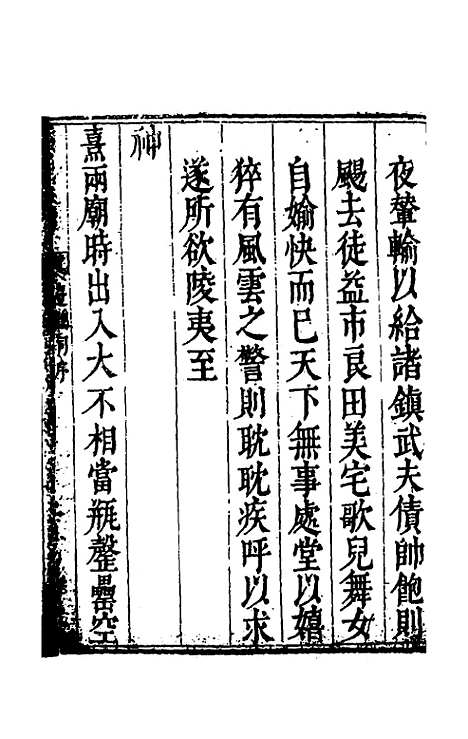 夜輦輸以給諸鎮武夫債帥飽則
颺去徒益市良田美宅歌兒舞女
自媮快而已天下無事處堂以嬉
猝有風雲之警則耽耽疾呼以求
遂所欲陵夷至
神
熹兩廟時出入大不相當瓶罄罍空